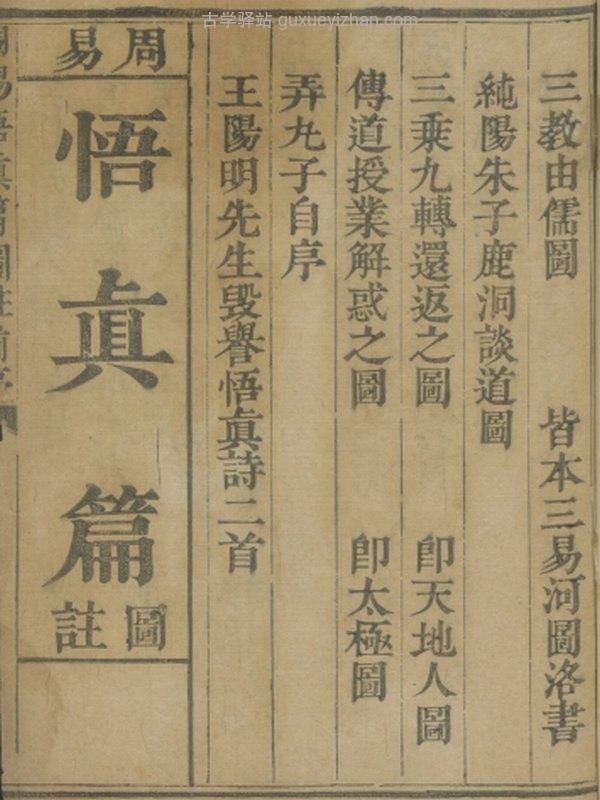 古学驿站 guxueyizhan.com
三教由儒圖 皆本三易河圖洛書
純陽朱子鹿洞談道圖
三乘九轉還返之圖 卽天地人圖
傳道授業解惑之圖 卽太極圖
弄丸子自序
王陽明先生毁譽悟眞詩二首
周易
悟眞篇
圖註